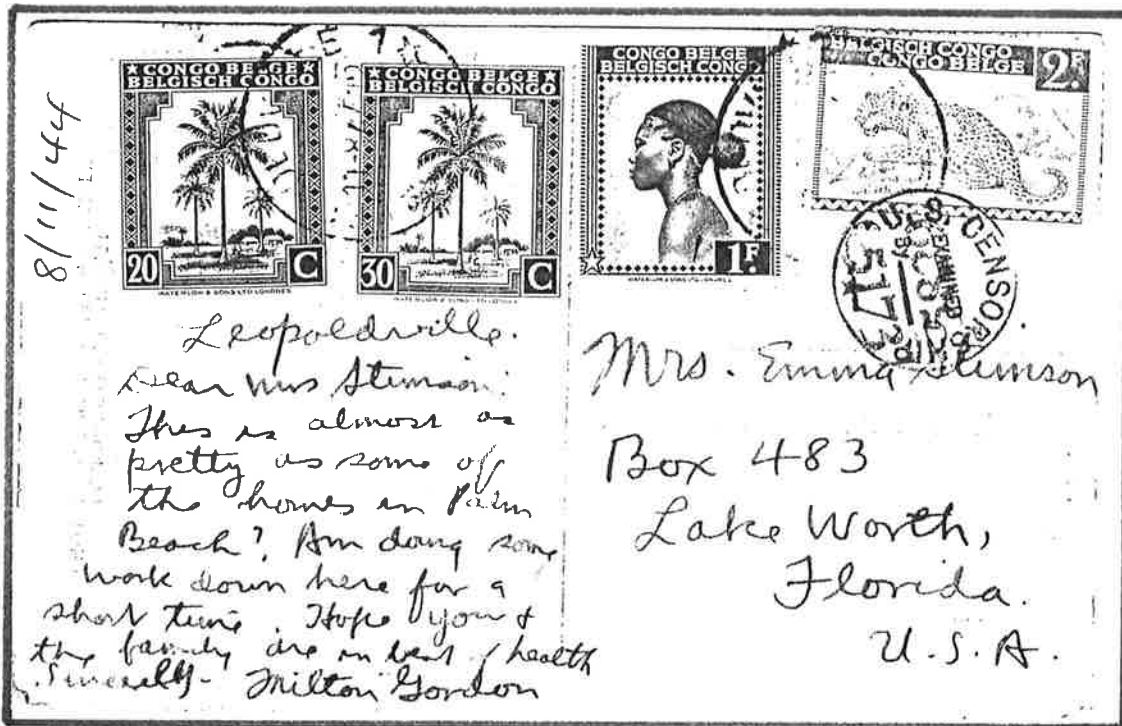 8/11/44
★ CONGO BELGE ★
BELGISCH CONGO
20 C
WATERLOW & SONS LTD LONDRES
★ CONGO BELGE ★
BELGISCH CONGO
30 C
WATERLOW & SONS LTD LONDRES
CONGO BELGE
BELGISCH CONGO
1F.
WATERLOW & SONS LTD LONDRES
BELGISCH CONGO
CONGO BELGE
2F.
U.S. CENSOR
EXAMINED
BY
Leopoldville.
Dear Mrs Stimson:
This is almost as
pretty as some of
the homes in Palm
Beach? Am doing some
work down here for a
short time. Hope you &
the family are in best of health
Sincerely- Milton Gordon
Mrs. Emma Stimson
Box 483
Lake Worth,
Florida.
U.S.A.